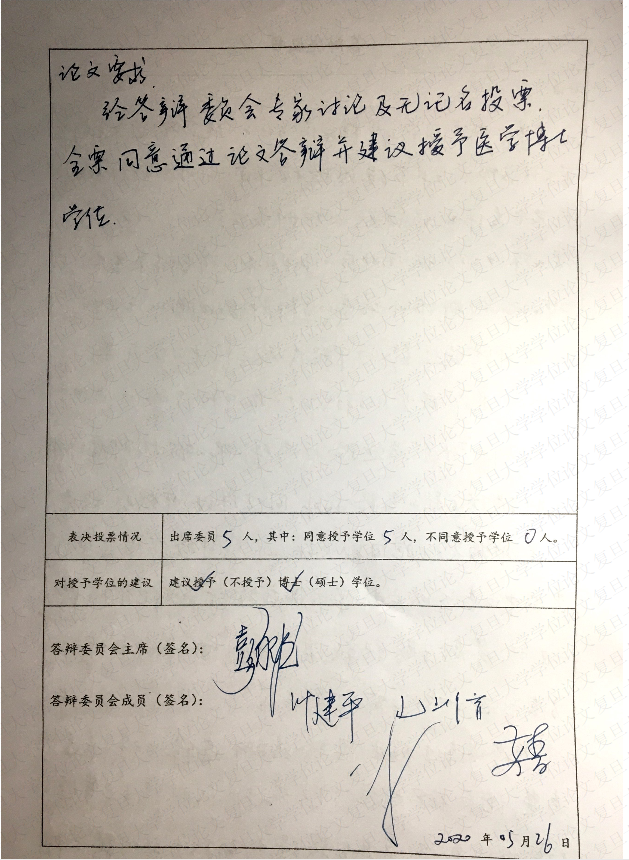 论文要求.
经答辩委员会专家讨论及无记名投票,
全票同意通过论文答辩并建议授予医学博士
学位.
表决投票情况
出席委员 5 人，其中：同意授予学位 5 人，不同意授予学位 0 人。
对授予学位的建议
建议授予（不授予）博士（硕士）学位。
答辩委员会主席（签名）：
答辩委员会成员（签名）：
叶建平
2020 年 05 月 26 日